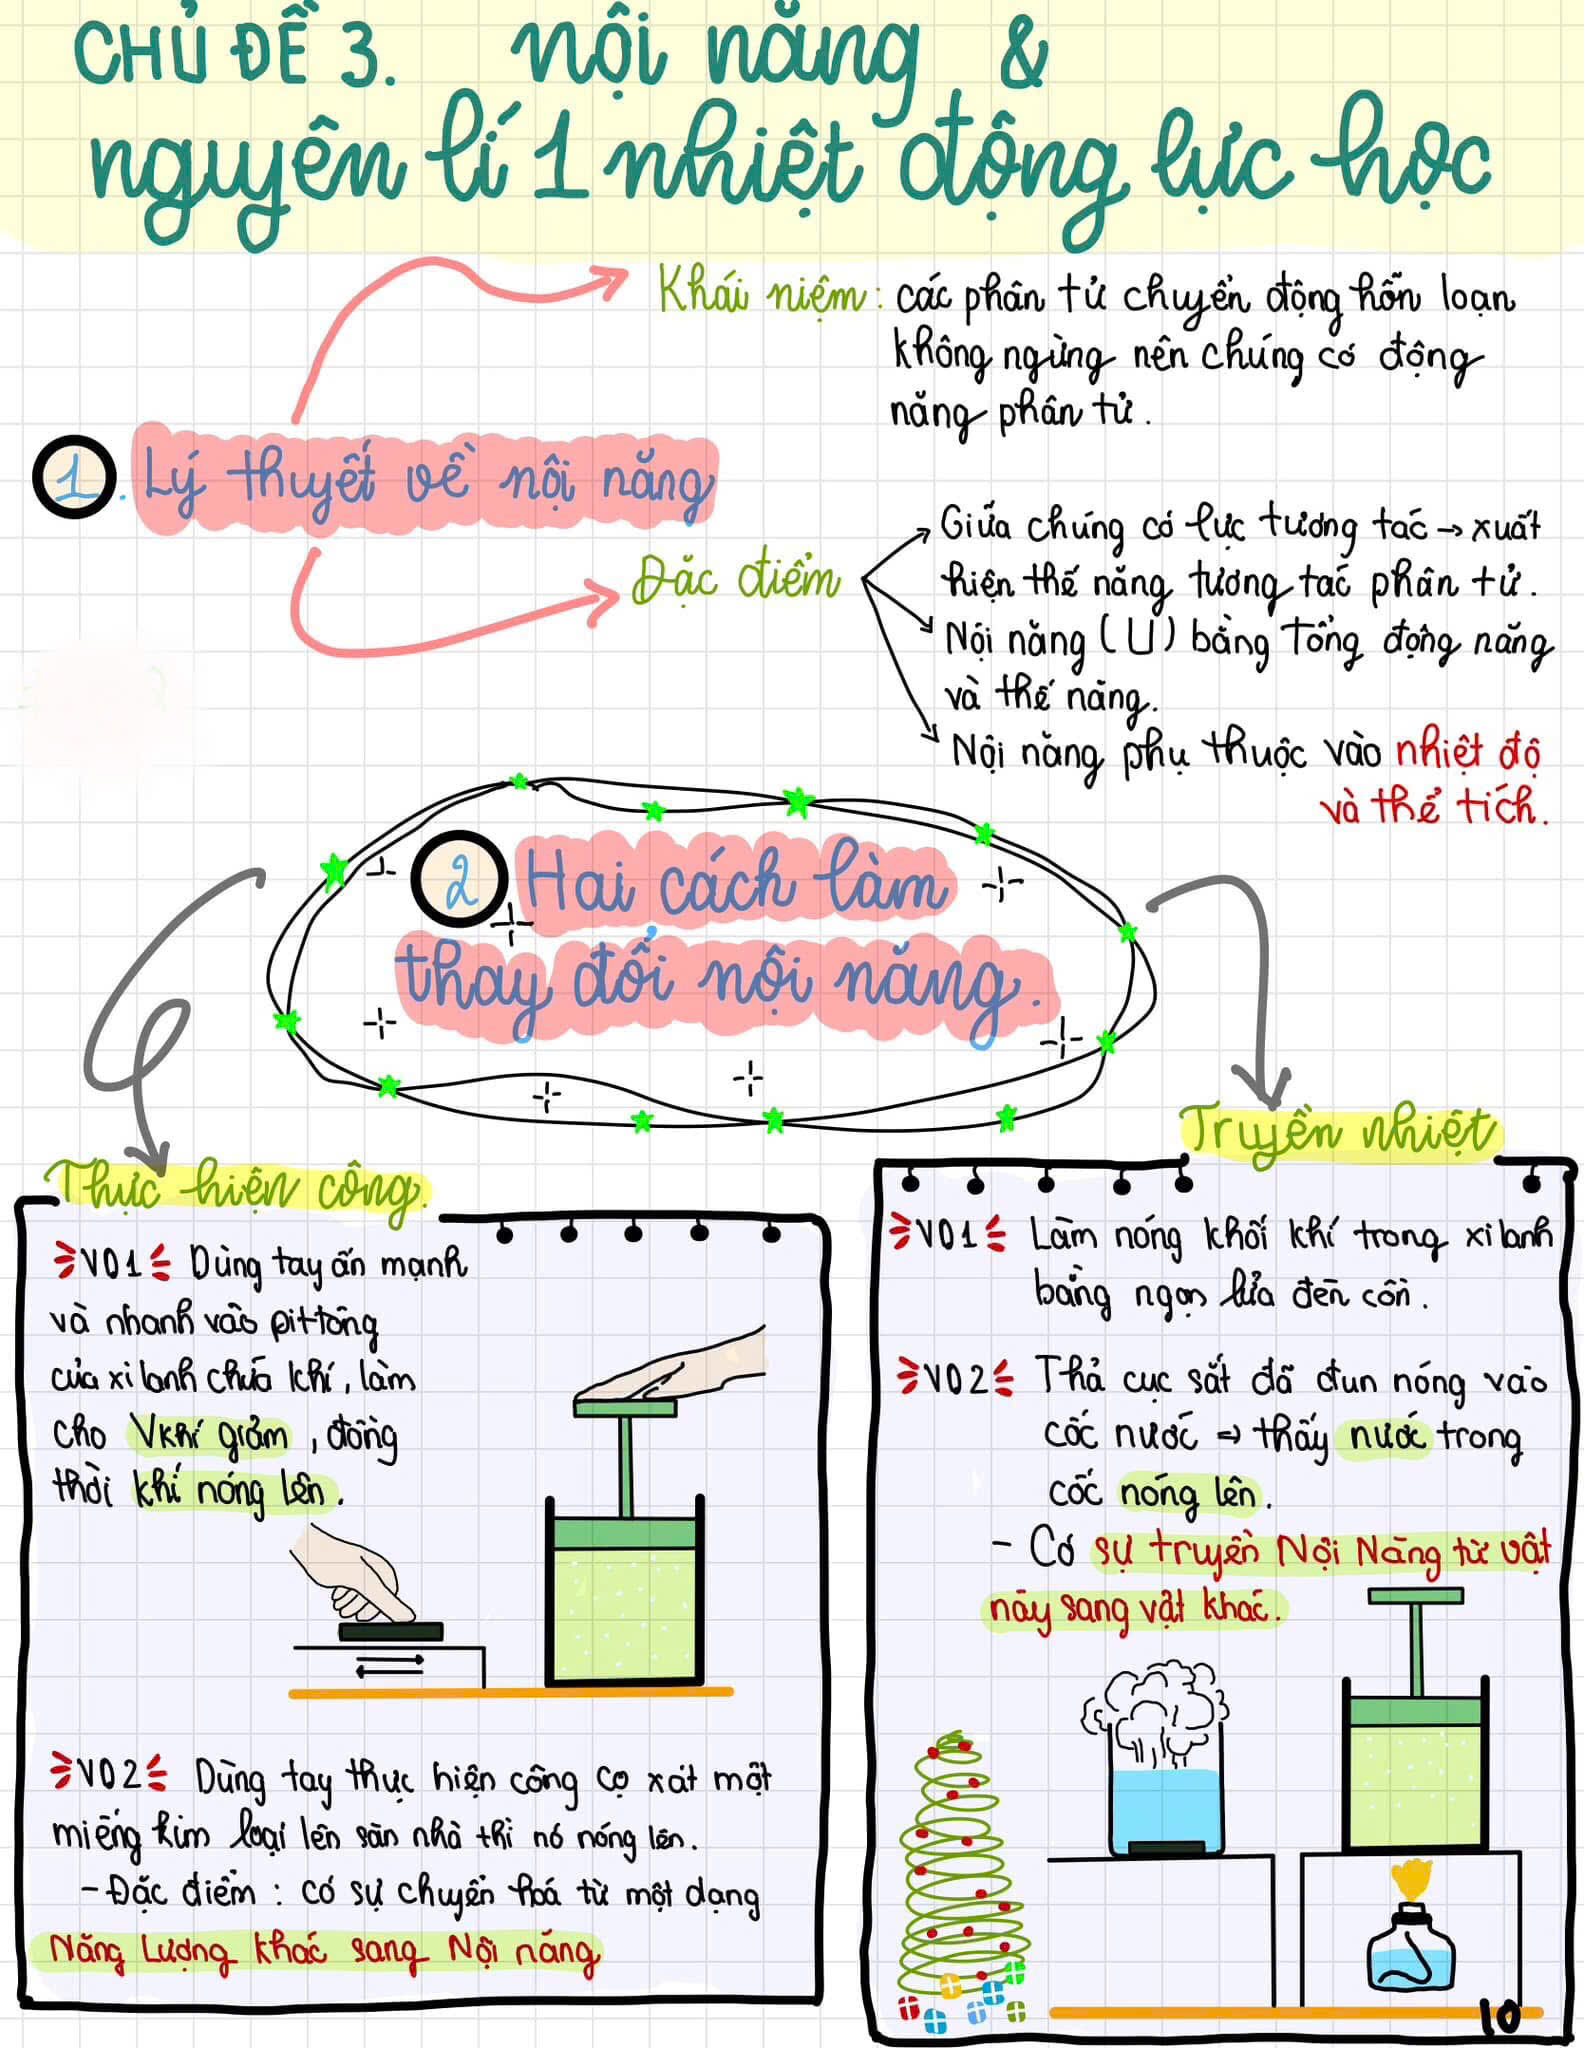 CHỦ ĐỀ 3. nội năng &
nguyên lí 1 nhiệt động lực học
Khái niệm: các phân tử chuyển động hỗn loạn
không ngừng nên chúng có động
năng phân tử.
1. Lý thuyết về nội năng
Đặc điểm
Giữa chúng có lực tương tác → xuất
hiện thế năng tương tác phân tử.
Nội năng (U) bằng tổng động năng
và thế năng.
Nội năng phụ thuộc vào nhiệt độ
và thể tích.
2 Hai cách làm
thay đổi nội năng.
Thực hiện công.
VD1 Dùng tay ấn mạnh
và nhanh vào pittông
của xi lanh chứa khí, làm
cho Vkhí giảm, đồng
thời khí nóng lên.
VD2 Dùng tay thực hiện công cọ xát một
miếng kim loại lên sàn nhà thì nó nóng lên.
- Đặc điểm: có sự chuyển hoá từ một dạng
Năng Lượng khác sang Nội năng
Truyền nhiệt
VD1 Làm nóng khối khí trong xi lanh
bằng ngọn lửa đèn cồn.
VD2 Thả cục sắt đã đun nóng vào
cốc nước ⇒ thấy nước trong
cốc nóng lên.
- Có sự truyền Nội Năng từ vật
này sang vật khác.
10